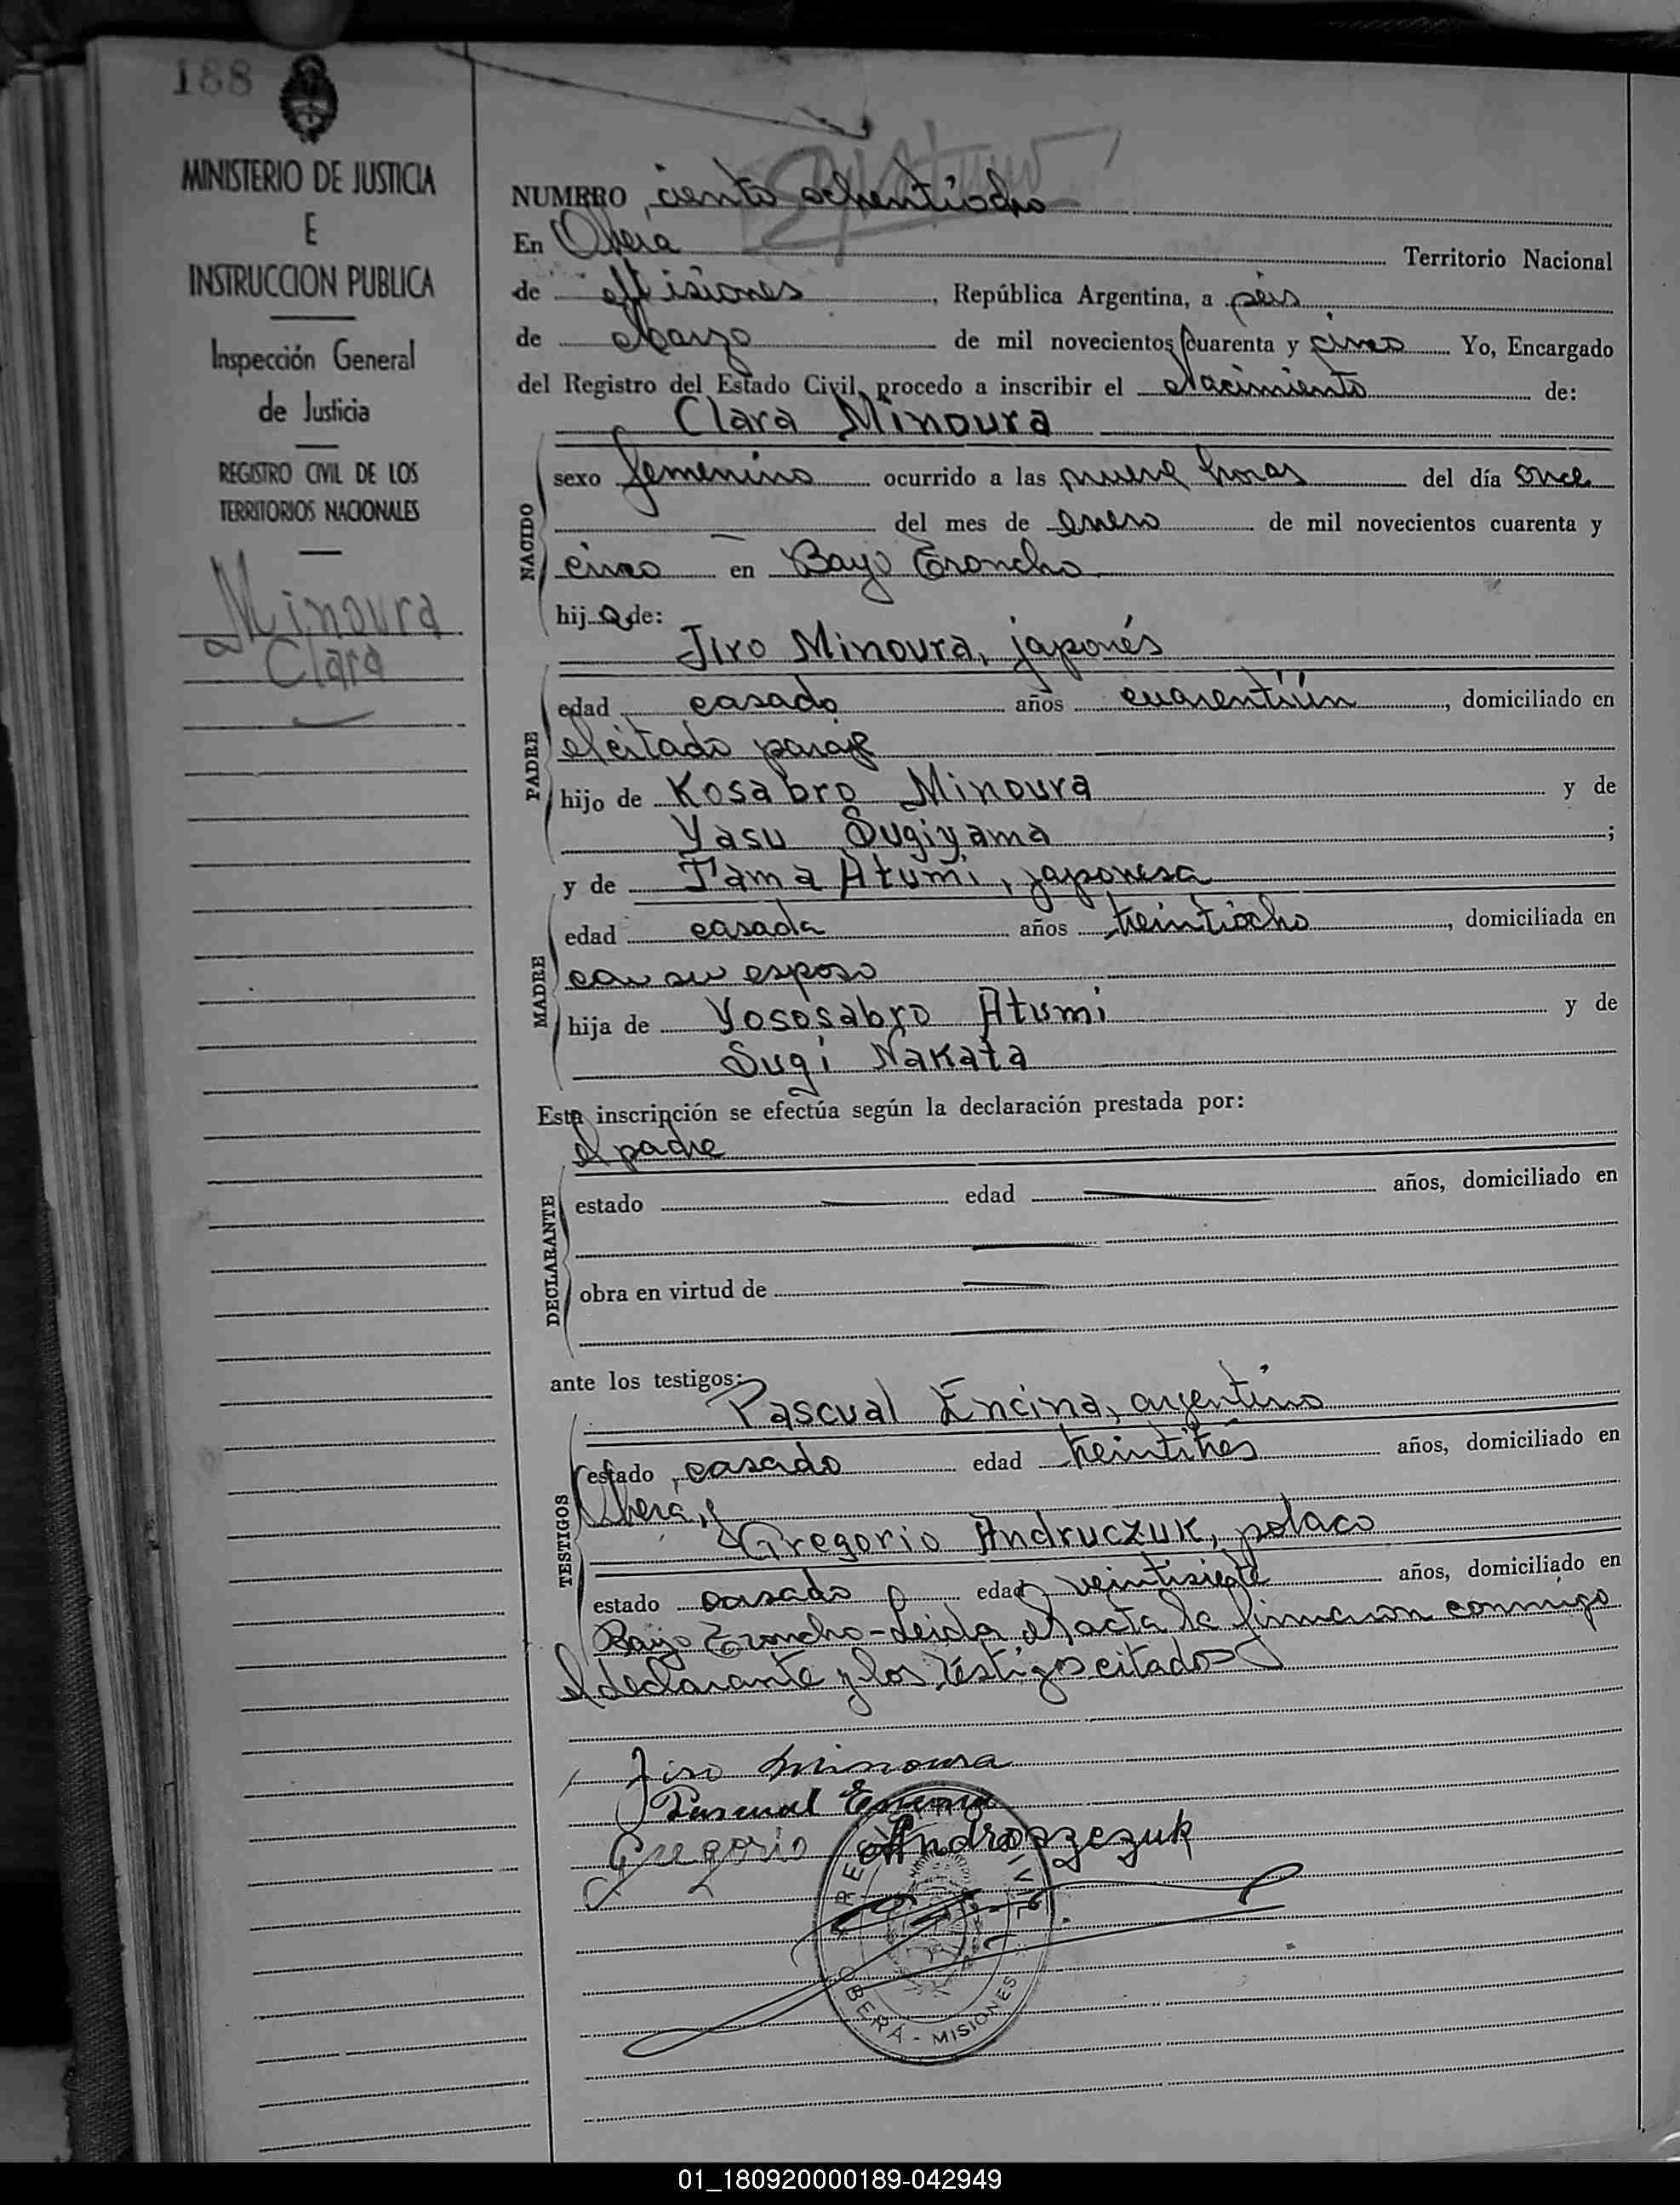 188
MINISTERIO DE JUSTICIA
E
INSTRUCCION PUBLICA
Inspección General
de Justicia
REGISTRO CIVIL DE LOS
TERRITORIOS NACIONALES
Minoura
Clara
NUMERO ciento ochentiocho
En Oberá Territorio Nacional
de Misiones, República Argentina, a seis
de Marzo de mil novecientos cuarenta y cinco Yo, Encargado
del Registro del Estado Civil, procedo a inscribir el Nacimiento de:
Clara Minoura
NACIDO
sexo femenino ocurrido a las nueve horas del día once
del mes de Enero de mil novecientos cuarenta y
cinco en Bajo Troncho
hija de:
Jiro Minoura, japonés
PADRE
edad casado años cuarentiún, domiciliado en
el citado paraje
hijo de Kosabro Minoura y de
Yasu Sugiyama;
y de Tama Atumi, japonesa
MADRE
edad casada años treintiocho, domiciliada en
con su esposo
hija de Yososabro Atumi y de
Sugi Nakata
Esta inscripción se efectúa según la declaración prestada por:
el padre
DECLARANTE
estado edad años, domiciliado en
obra en virtud de
ante los testigos:
Pascual Encina, argentino
TESTIGOS
estado casado edad treintitrés años, domiciliado en
Oberá, y
Gregorio Andruczuk, polaco
estado casado edad veintisiete años, domiciliado en
Bajo Troncho - Leida el acta la firmaron conmigo
el declarante y los testigos citados
Jiro Minoura
Pascual Encina
Gregorio Androszczuk
OBERÁ - MISIONES
01_180920000189-042949